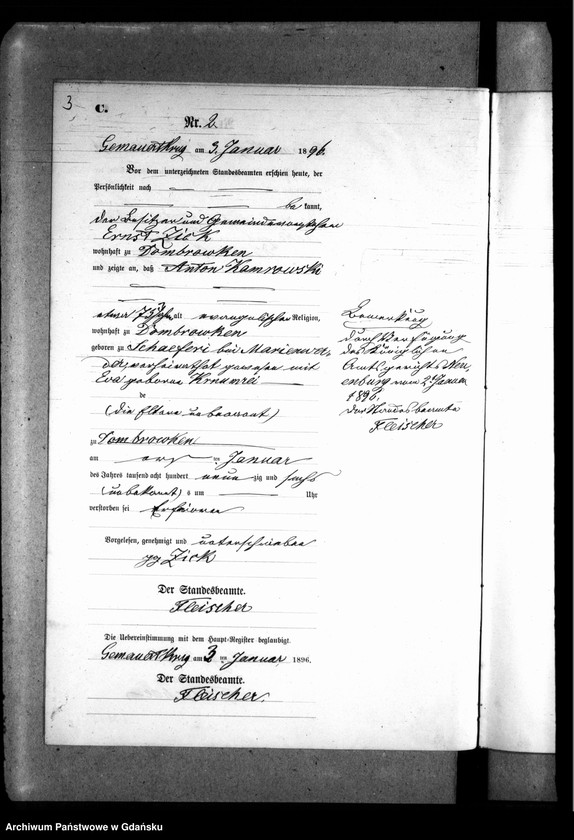 3
C.
Nr. 2
Gemauertkrug am 3. Januar 1896.
Vor dem unterzeichneten Standesbeamten erschien heute, der
Persönlichkeit nach
be kannt,
der Besitzer und Gemeindevorsteher
Ernst Zick
wohnhaft zu Dombrowken
und zeigte an, daß Anton Kamrowski
etwa 73 Jahre alt evangelischer Religion,
wohnhaft zu Dombrowken
geboren zu Schaeferi bei Marienwer-
der, verheirathet gewesen mit
Eva geborene
de
(die Eltern unbekannt)
zu Dombrowken
am ten Januar
des Jahres tausend acht hundert neun zig und sechs
(unbekannt) s um Uhr
verstorben sei erfroren
Vorgelesen, genehmigt und unterschrieben
gez Zick
Der Standesbeamte.
Fleischer
Die Uebereinstimmung mit dem Haupt-Register beglaubigt.
Gemauertkrug am 3 ten Januar 1896.
Der Standesbeamte.
Fleischer.
Bemerkung
durch Verfügung
des Königlichen
Amtsgerichts Neu-
enburg vom 2. Januar
1896.
Der Standesbeamte
Fleischer
Archiwum Państwowe w Gdańsku